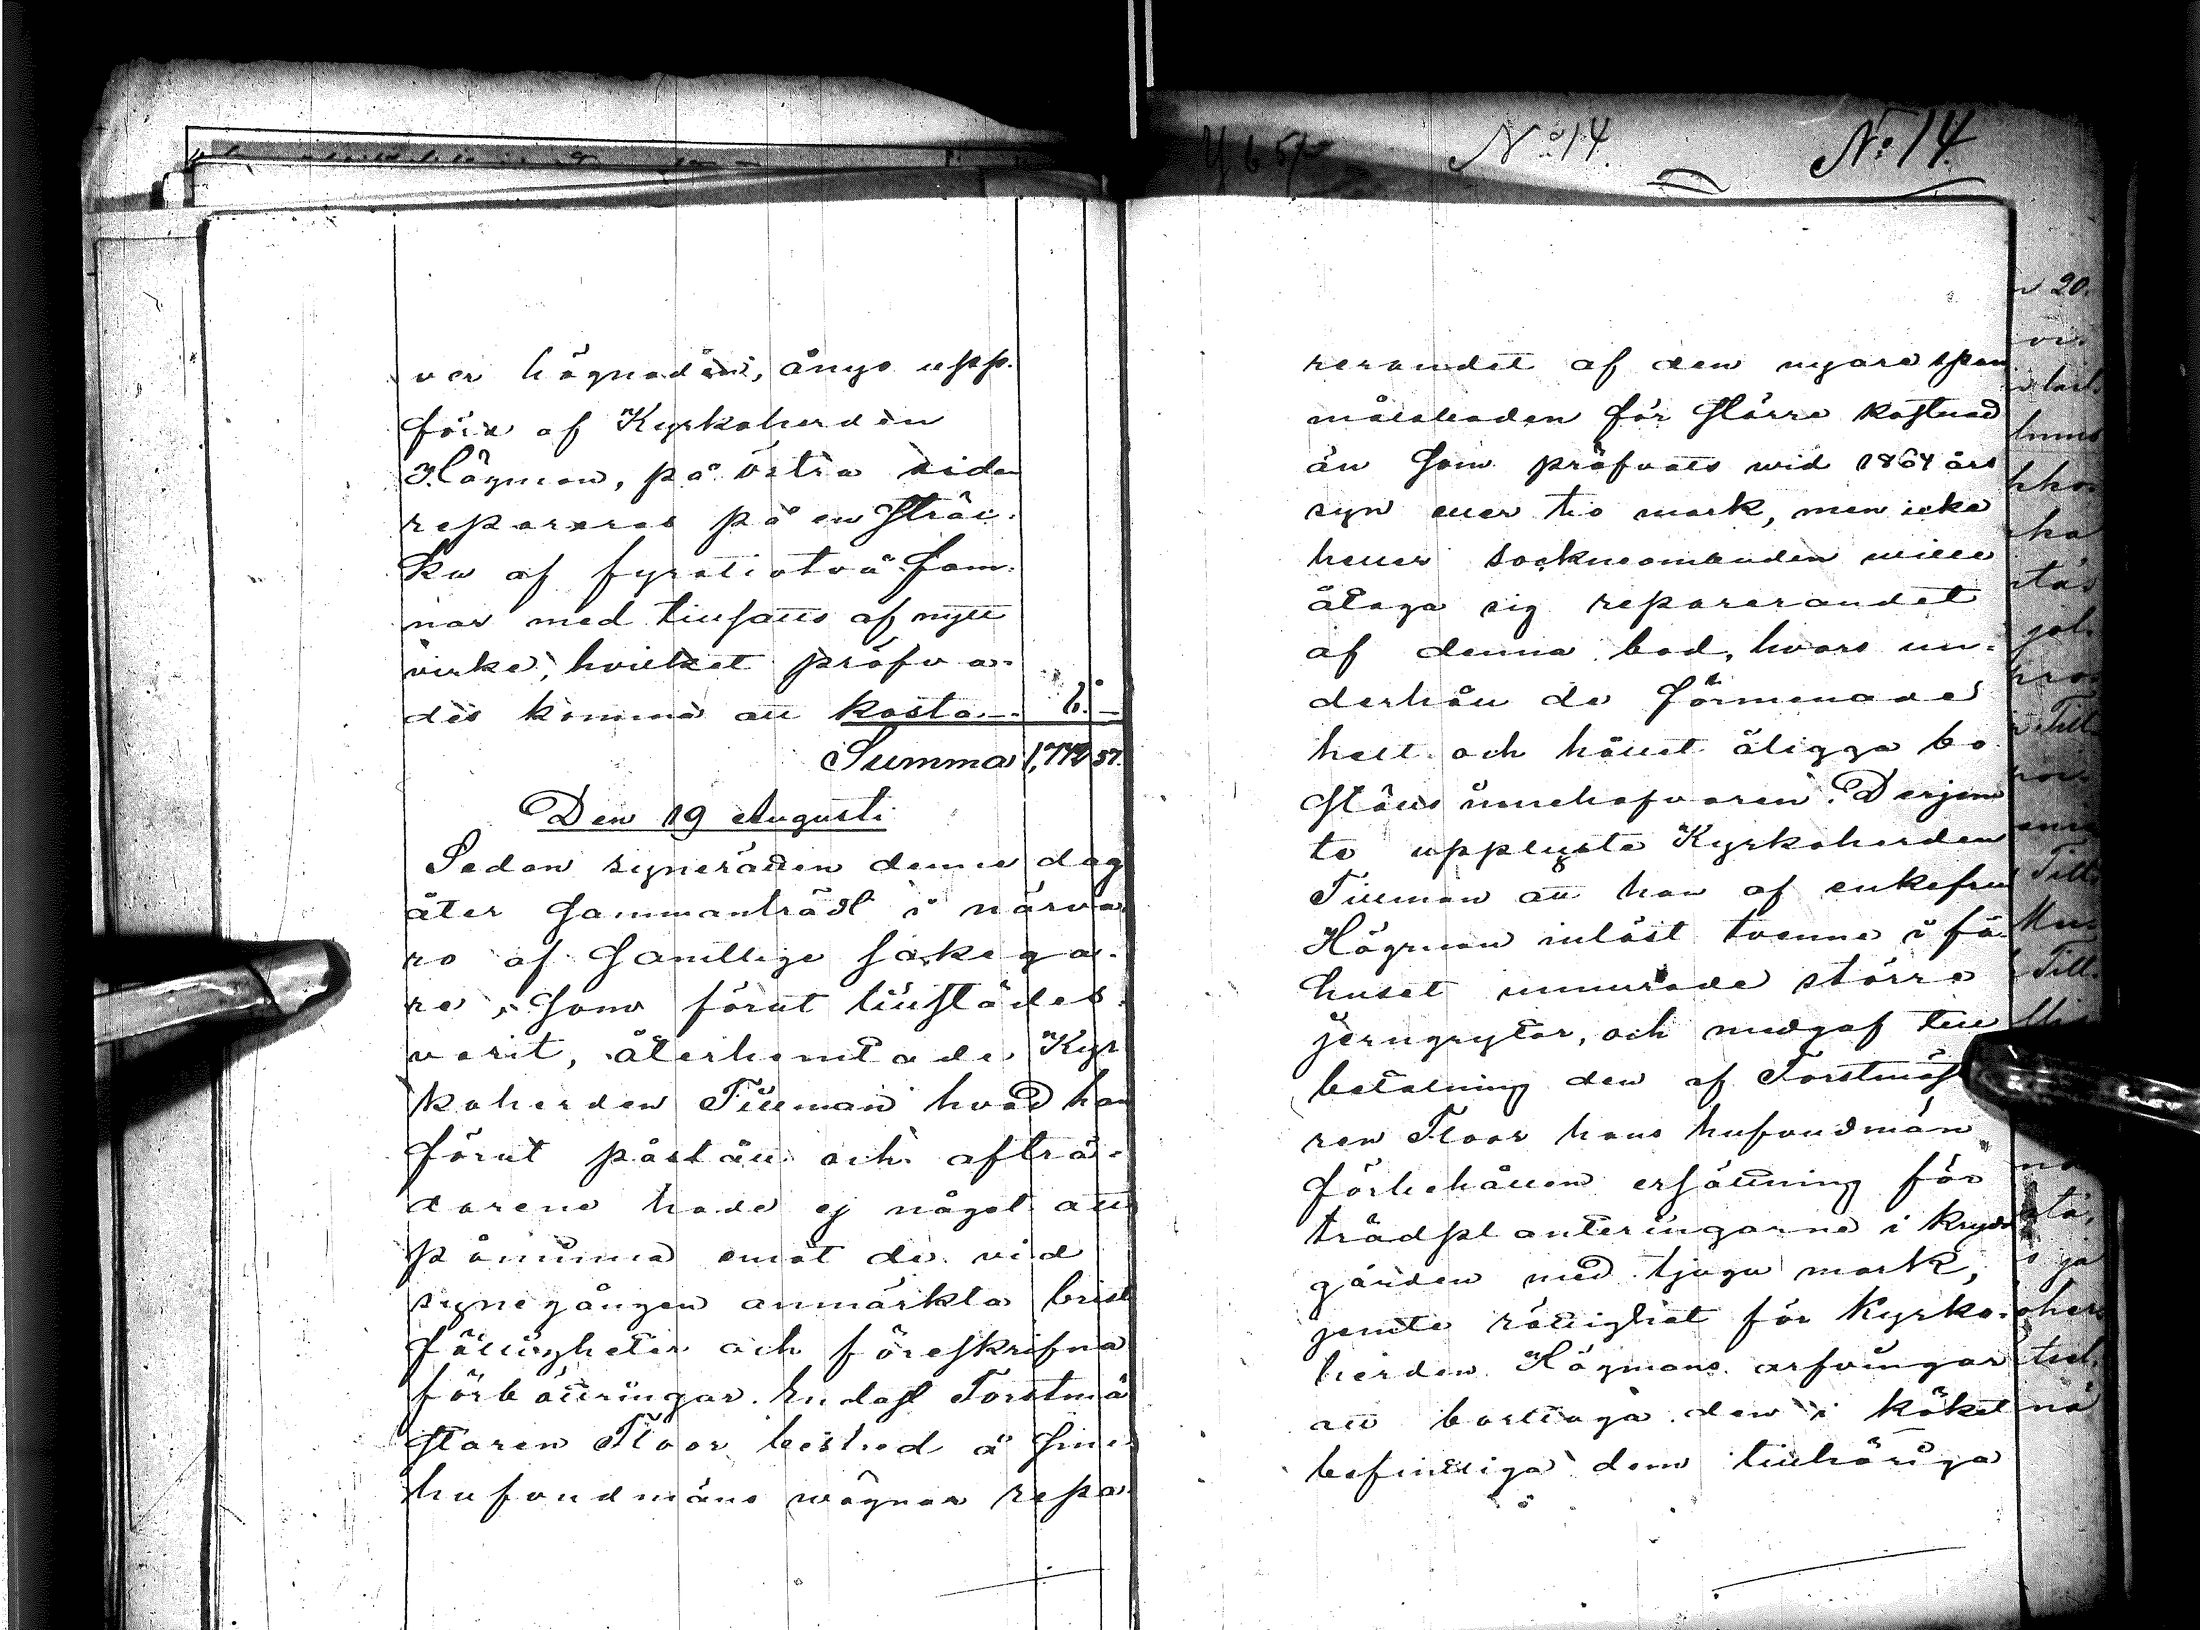 No 14. No 14.
ver högnaden, ånyo upp-
förd af Kyrkoherden
Högman, på östra sidan
repareras på en sträc-
ka af fyratiotvå fam-
nar med tillsatts af nytt
virke, hvilket pröfva-
des komma att kosta 6. –
Summa 57.
Den 19 Augusti
Sedan synerätten denne dag
åter sammanträdt i närva-
ro af samtlige sakega-
re, som förut tillstädes
varit, återhemtade Kyr-
koherden Tillman hvad han
förut påstått och afträ-
darene hade ej något att
påminna emot de vid
synegången anmärkta brist
fälligheter och föreskrifna
förbättringar. Endast Forstmä
staren Floor bestred å sine
hufvudmäns vägnar repa-
rerandet af den nyare span
målsboden för större kostnad
än som pröfvats wid 1864 års
syn eller tio mark, men icke
heller socknеombuden wille
åtaga sig reparerandet
af denna bod, hvars un-
derhåll de förmenade
helt och hållet åligga bo
ställs innehafvaren. Derjem
te upplyste Kyrkoherden
Tillman att han af enkefru
Högman inlöst tvenne i fä-
huset inmurade större
jerngrytor, och medgaf till
betalning den af Forstmäst
ren Floor hans hufvudmän
förbehållen ersättning för
trädplanteringarne i krydd
gården med tjugu mark,
jemte rättighet för Kyrko-
herden Högmans arfvingar
att borttaga den i köket
befintliga dem tillhöriga